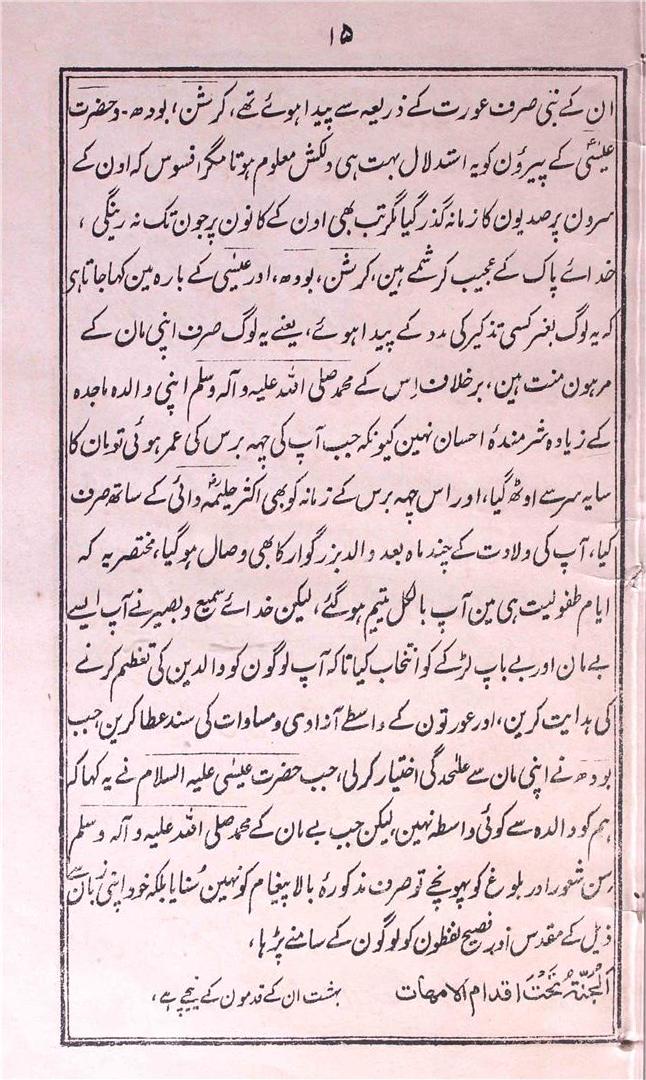 ۱۵
ان کے نبی صرف عورت کے ذریعہ سے پیدا ہوئے تھے، کرشن، بودھ، وحضرت
عیسٰیؑ کے پیرؤن کو یہ استدلال بہت ہی دلکش معلوم ہوتا مگر افسوس کہ اون کے
سرون پر صدیون کا زمانہ گذر گیا مگر تب بھی اون کے کانون پر جون تک نہ رینگی،
خدائے پاک کے عجیب کرشمے ہین، کرشن، بودھ، اور عیسٰی کے بارہ مین کہا جاتا ہی
کہ یہ لوگ بغیر کسی تذکیر کی مدد کے پیدا ہوئے، یعنے یہ لوگ صرف اپنی مان کے
مرہون منت ہین، برخلاف اِس کے محمد صلی اللہ علیہ و آلہ وسلم اپنی والدہ ماجدہ
کے زیادہ شرمندۂ احسان نہین کیونکہ جب آپ کی چہہ برس کی عمر ہوئی تو مان کا
سایہ سر سے اوٹھ گیا، اور اس چہہ برس کے زمانہ کو بھی اکثر حلیمہؓ دائی کے ساتھ صرف
کیا، آپ کی ولادت کے چند ماہ بعد والد بزرگوار کا بھی وصال ہو گیا، مختصر یہ کہ
ایام طفولیت ہی مین آپ بالکل یتیم ہو گئے، لیکن خدائے سمیع و بصیر نے آپ ایسے
بے مان اور بے باپ لڑکے کو انتخاب کیا تاکہ آپ لوگون کو والدین کی تعظیم کرنے
کی ہدایت کرین، اور عورتون کے واسطے آزادی و مساوات کی سند عطا کرین، جب
بودھ نے اپنی مان سے علٰحدگی اختیار کر لی، جب حضرت عیسٰی علیہ السلام نے یہ کہا کہ
ہم کو والدہ سے کوئی واسطہ نہین، لیکن جب بے مان کے محمد صلی اللہ علیہ و آلہ وسلم
سن شعور اور بلوغ کو پہونچے تو صرف مذکورۂ بالا پیغام کو نہین سُنایا بلکہ خود اپنی زبان سے
ذیل کے مقدس اور فصیح لفظون کو لوگون کے سامنے پڑہا،
اَلْجَنَّۃُ تَحْتَ اقدام الامھات    بہشت ان کے قدمون کے نیچے ہے،